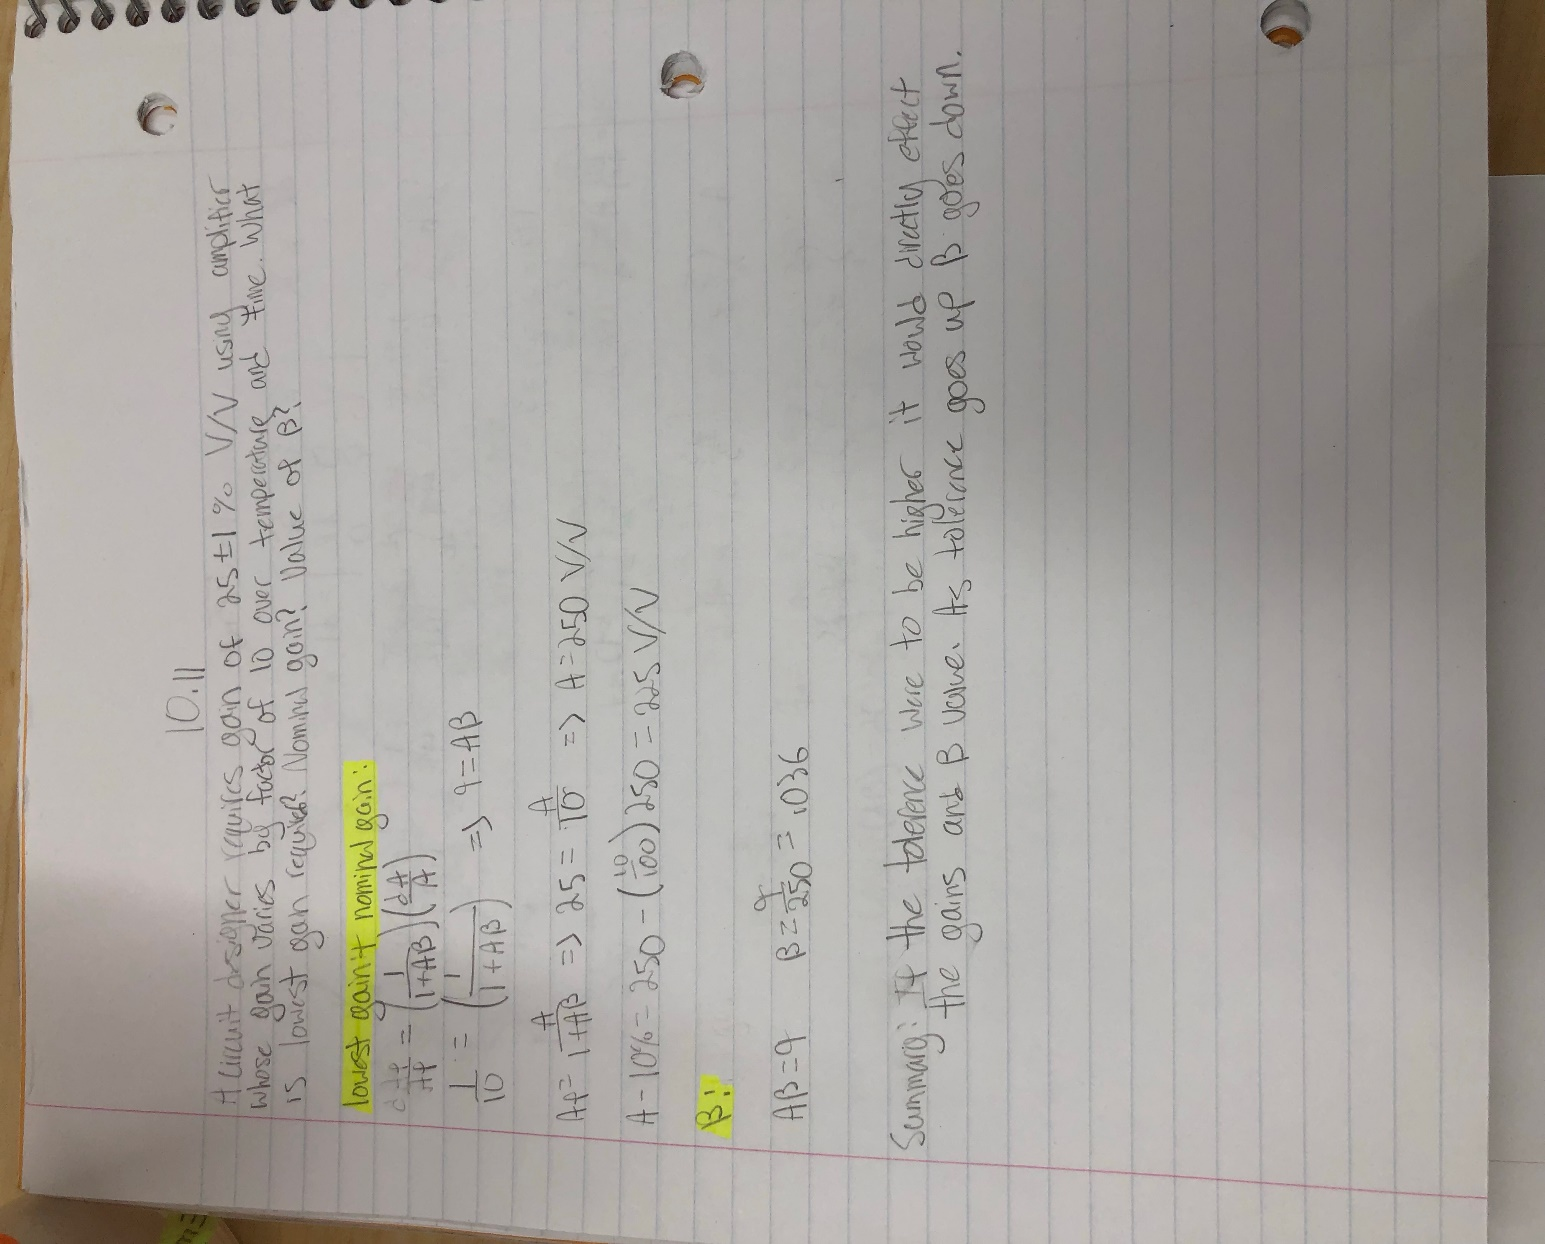 10.11
A Circuit designer requires gain of 25±1% V/V using amplifier
whose gain varies by factor of 10 over temperature and time. What
is lowest gain required? Nominal gain? Value of β?
lowest gain + nominal gain:
dAf/Af = (1/(1+Aβ))(dA/A)
1/10 = (1/(1+Aβ)) => 9=Aβ
Af = A/(1+Aβ) => 25 = A/10 => A=250 V/V
A-10% = 250-(10/100)250 = 225 V/V
β:
Aβ=9 β=9/250=.036
Summary: If the tolerence were to be higher it would directly effect
the gains and β value. As tolerence goes up β goes down.